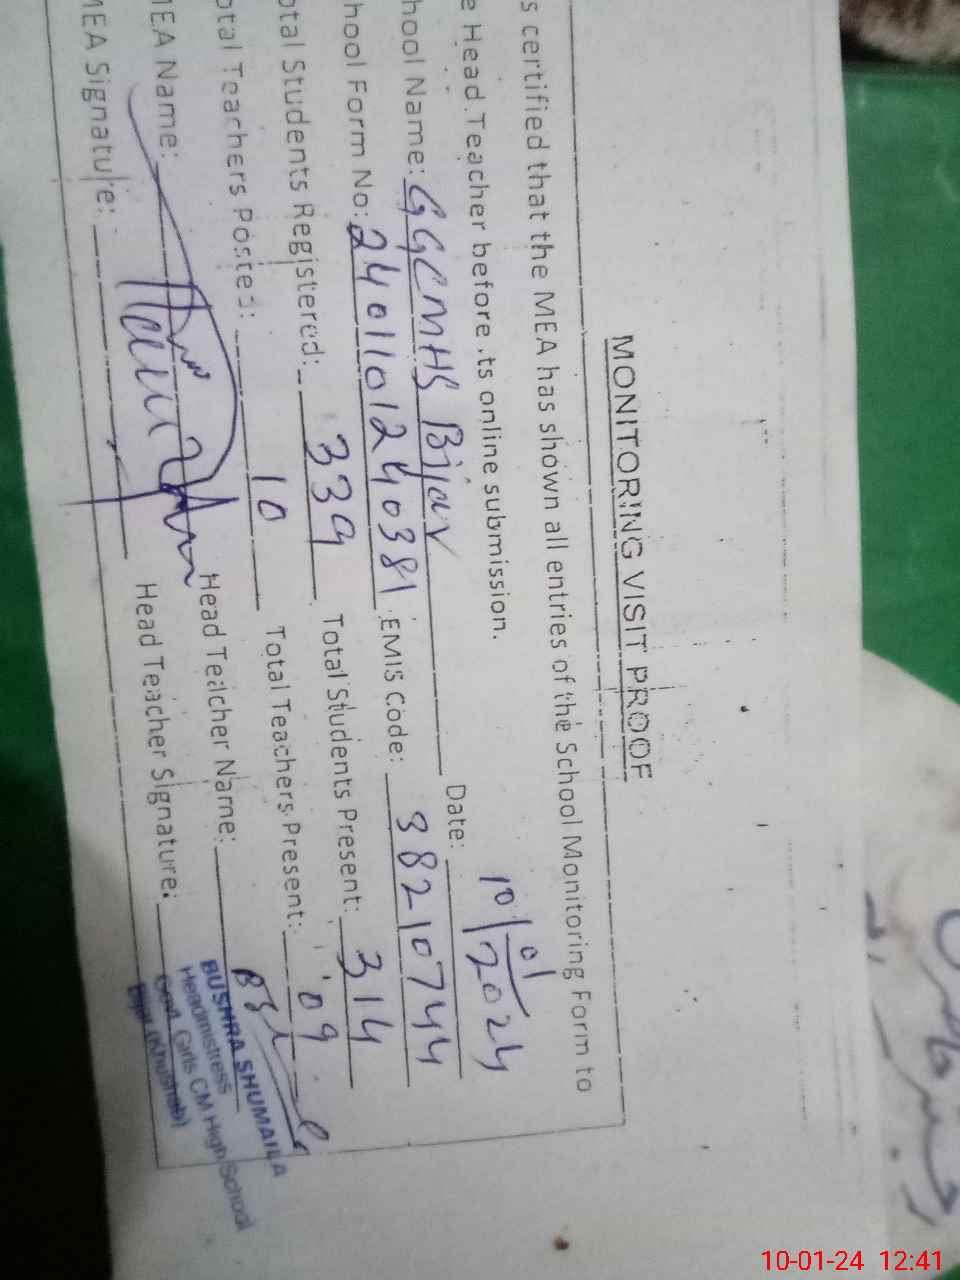 MONITORING VISIT PROOF
s certified that the MEA has shown all entries of the School Monitoring Form to
e Head Teacher before its online submission.
Date: 10/01/2024
hool Name: GGCMHS Bijar
hool Form No: 2401101240381 EMIS Code: 38210744
otal Students Registered: 339 Total Students Present: 314
otal Teachers Posted: 10 Total Teachers Present: 09
MEA Name: Head Teacher Name:
MEA Signature: Head Teacher Signature:
BUSHRA SHUMAILA
Headmistress
Govt. Girls CM High School
(Khushab)
10-01-24 12:41